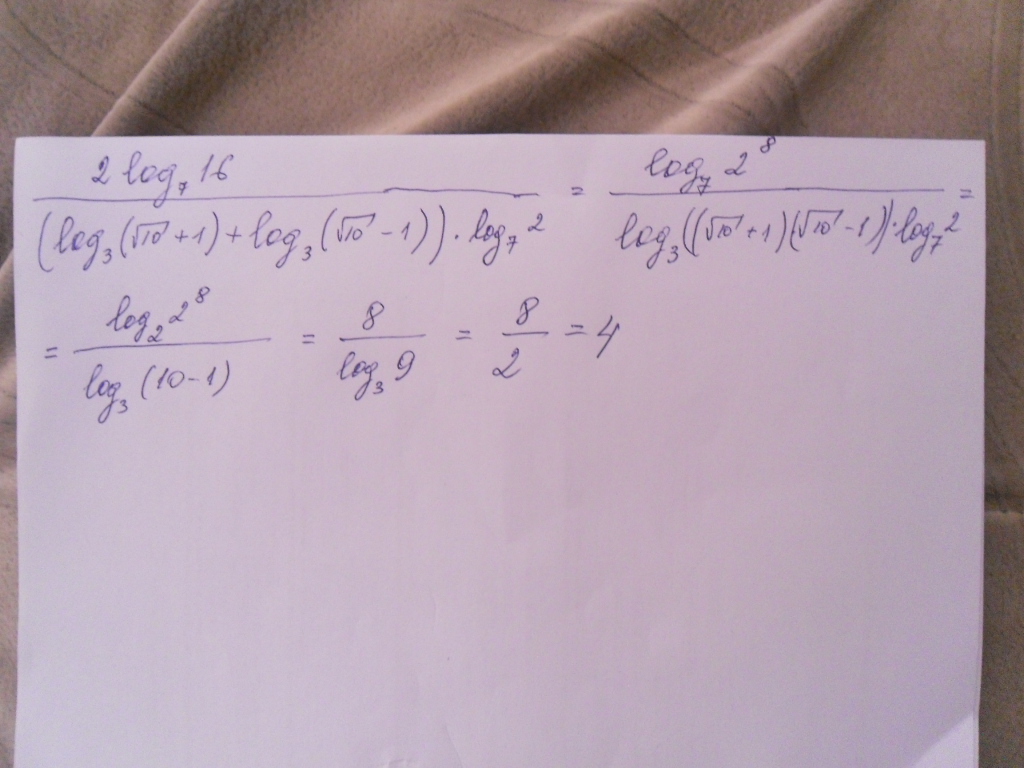 2 log₇ 16 / ((log₃(√10 + 1) + log₃(√10 - 1)) · log₇ 2) = log₇ 2⁸ / (log₃((√10 + 1)(√10 - 1)) · log₇ 2) =
= log₂ 2⁸ / log₃ (10 - 1) = 8 / log₃ 9 = 8 / 2 = 4